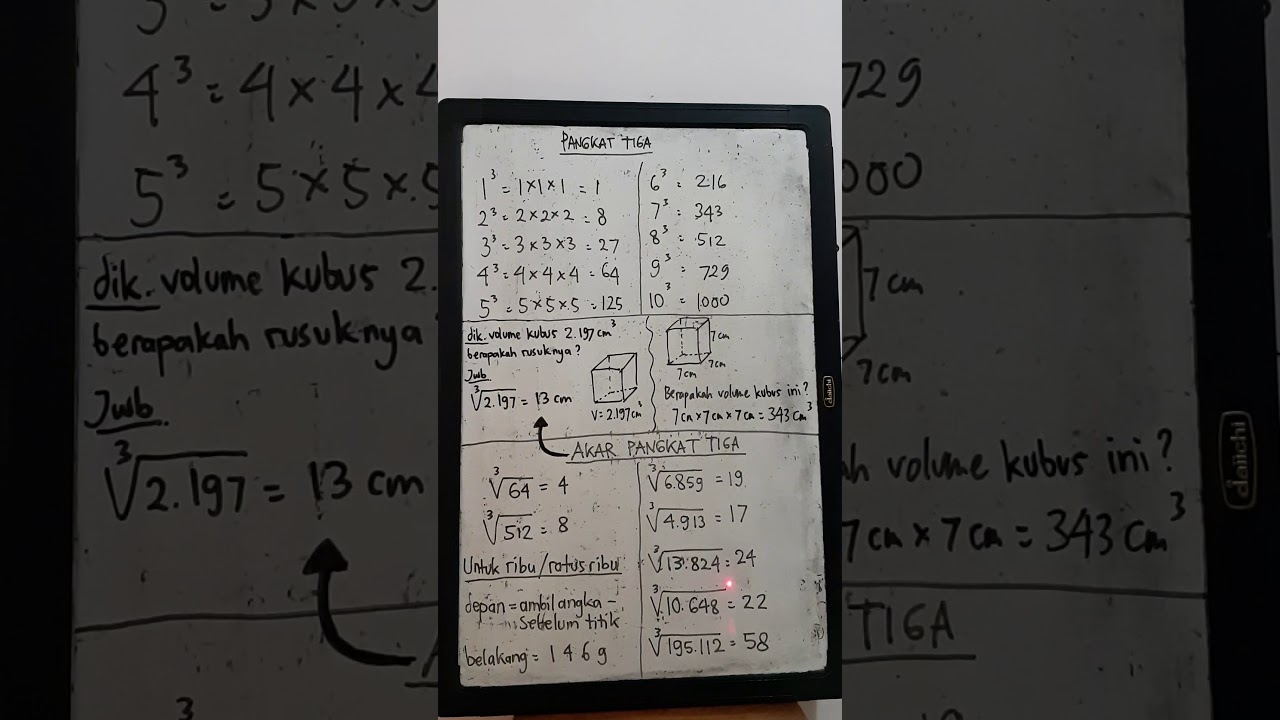 PANGKAT TIGA
1³ = 1×1×1 = 1
2³ = 2×2×2 = 8
3³ = 3×3×3 = 27
4³ = 4×4×4 = 64
5³ = 5×5×5 = 125
6³ = 216
7³ = 343
8³ = 512
9³ = 729
10³ = 1.000
dik. volume kubus 2.197 cm³
berapakah rusuknya?
Jwb
∛2.197 = 13 cm
V = 2.197 cm³
7 cm
7 cm
7 cm
Berapakah volume kubus ini?
7 cm × 7 cm × 7 cm = 343 cm³
daiichi
AKAR PANGKAT TIGA
∛64 = 4
∛512 = 8
Untuk ribu/ratus ribu
depan = ambil angka -
sebelum titik
belakang = 1 4 6 9
∛6.859 = 19
∛4.913 = 17
∛13.824 = 24
∛10.648 = 22
∛195.112 = 58